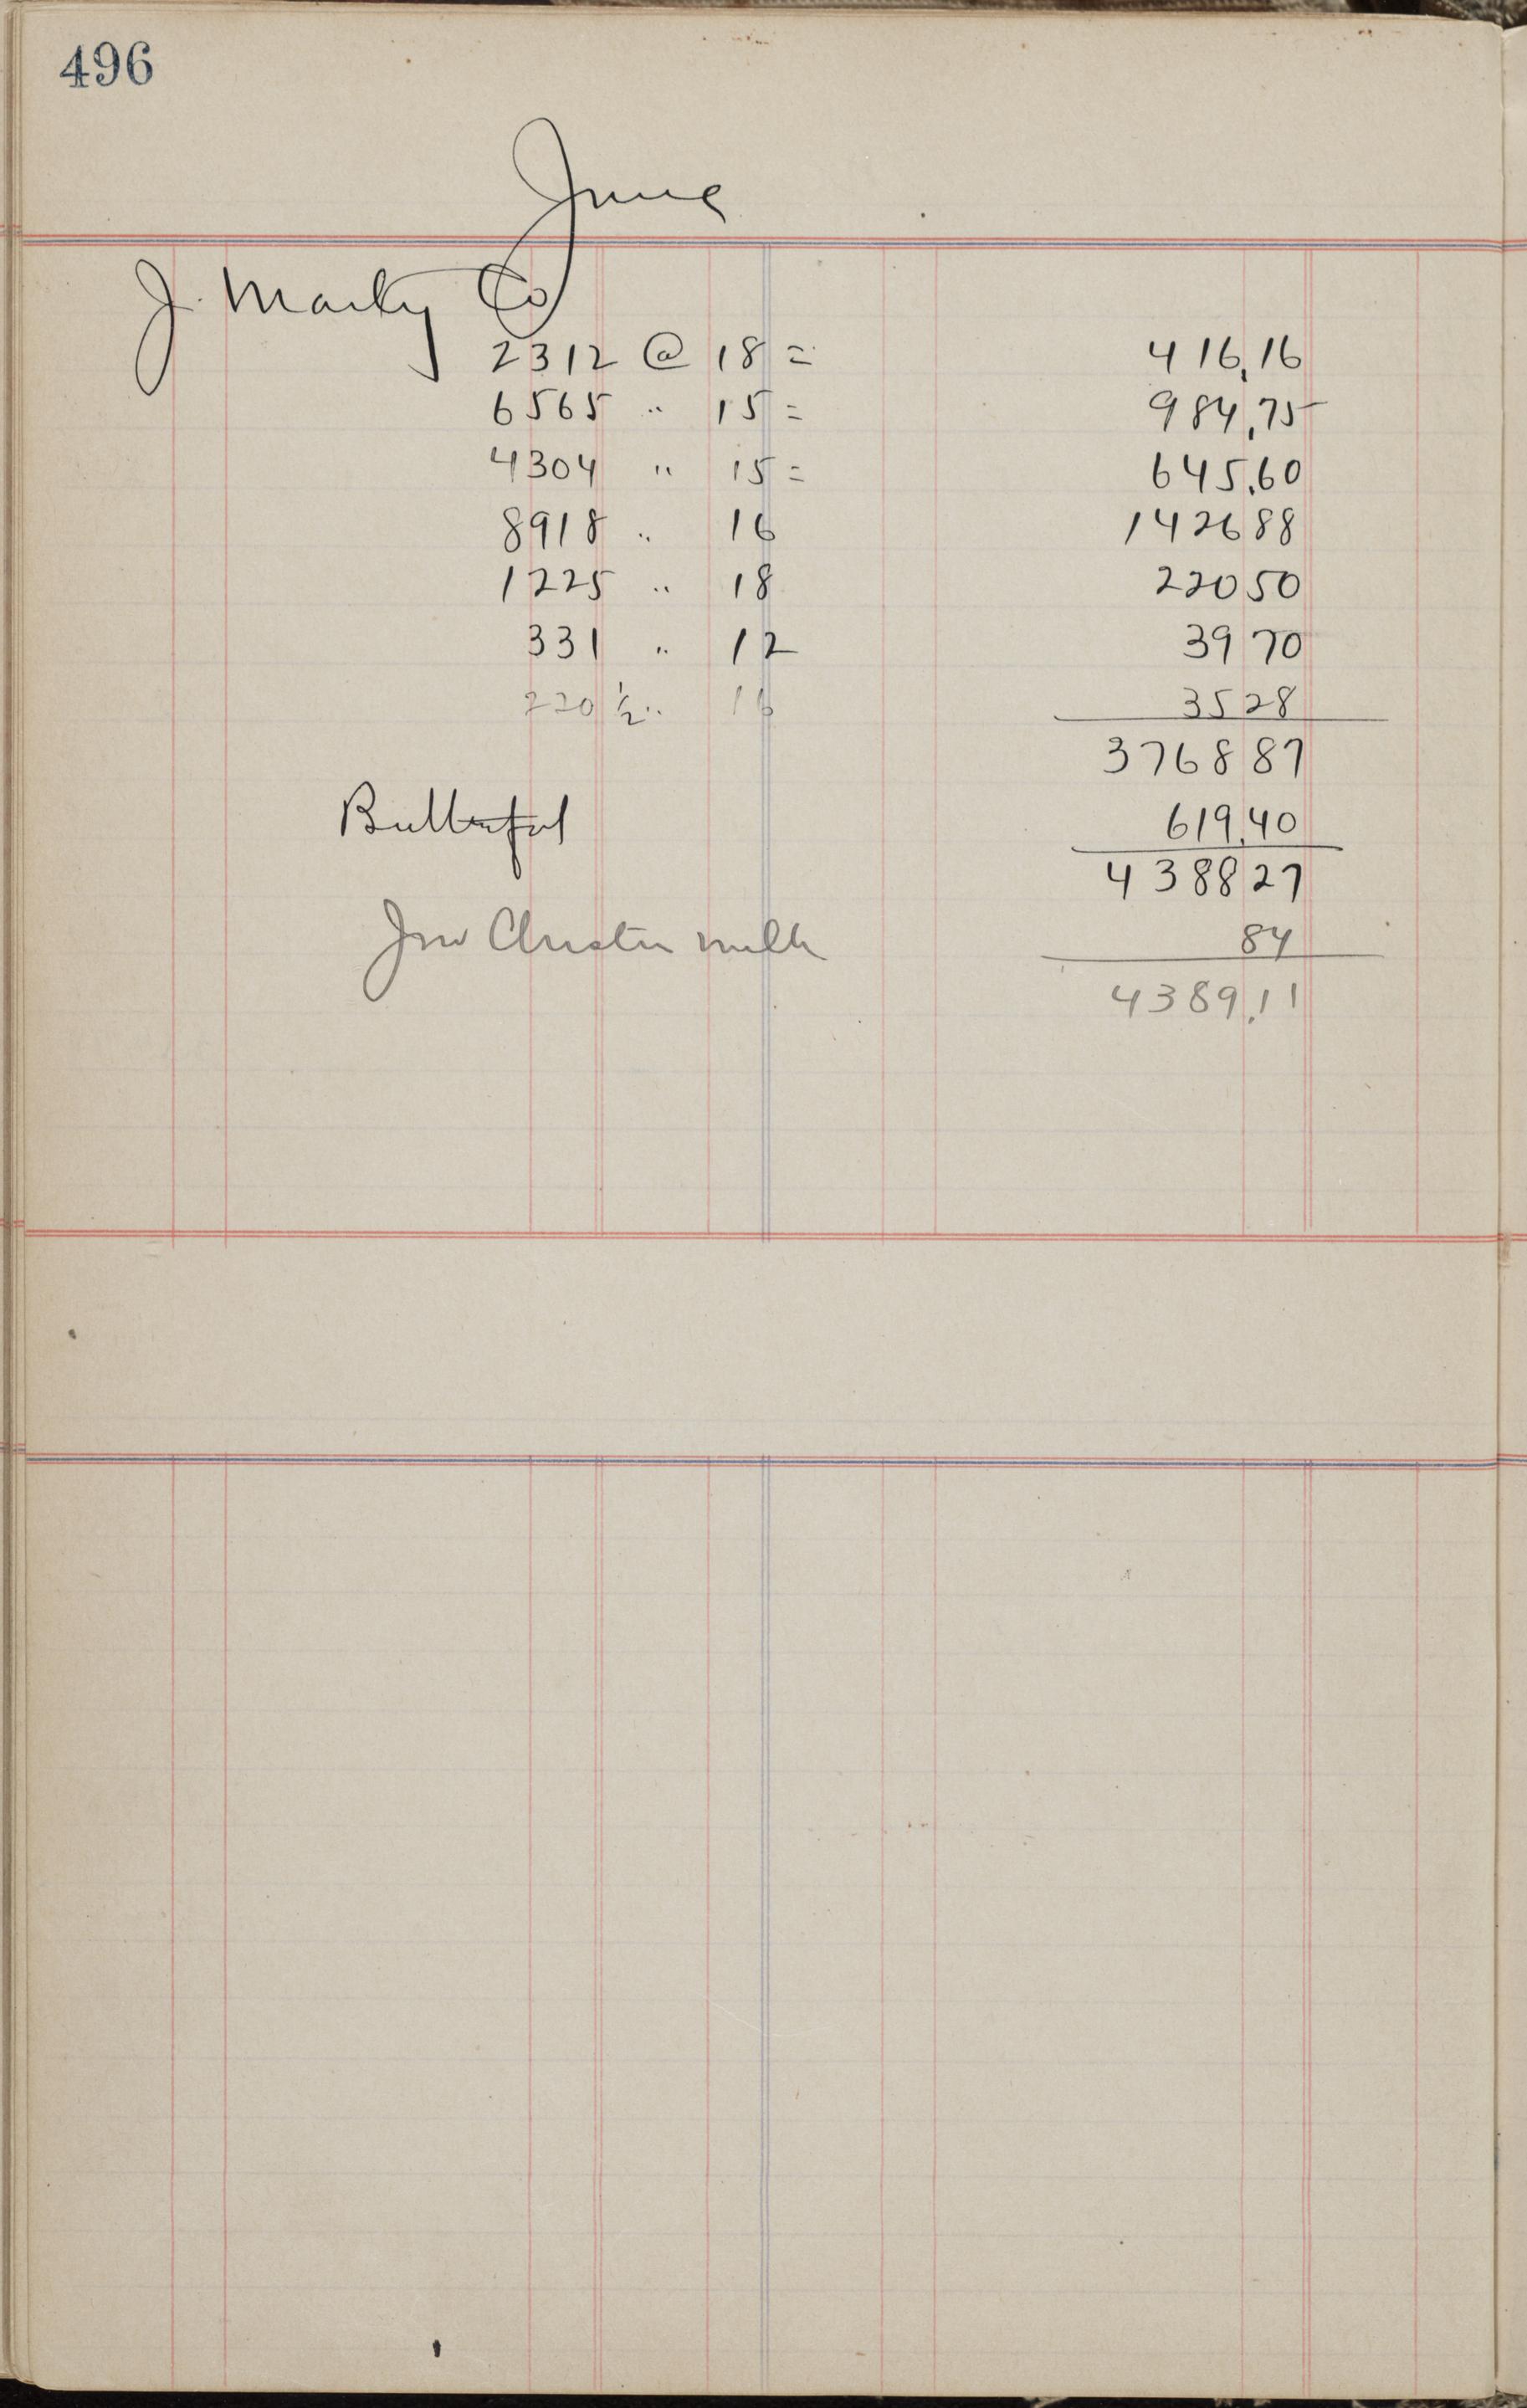 496
June
J. Marty Co
2312 @ 18 = 416.16
6565 " 15 = 984.75
4304 " 15 = 645.60
8918 " 16 1426 88
1225 " 18 220 50
331 " 12 39 70
220 1/2 " 16 35 28
3768 87
Butterfat 619.40
4388 27
Jno Chester milk 84
4389.11